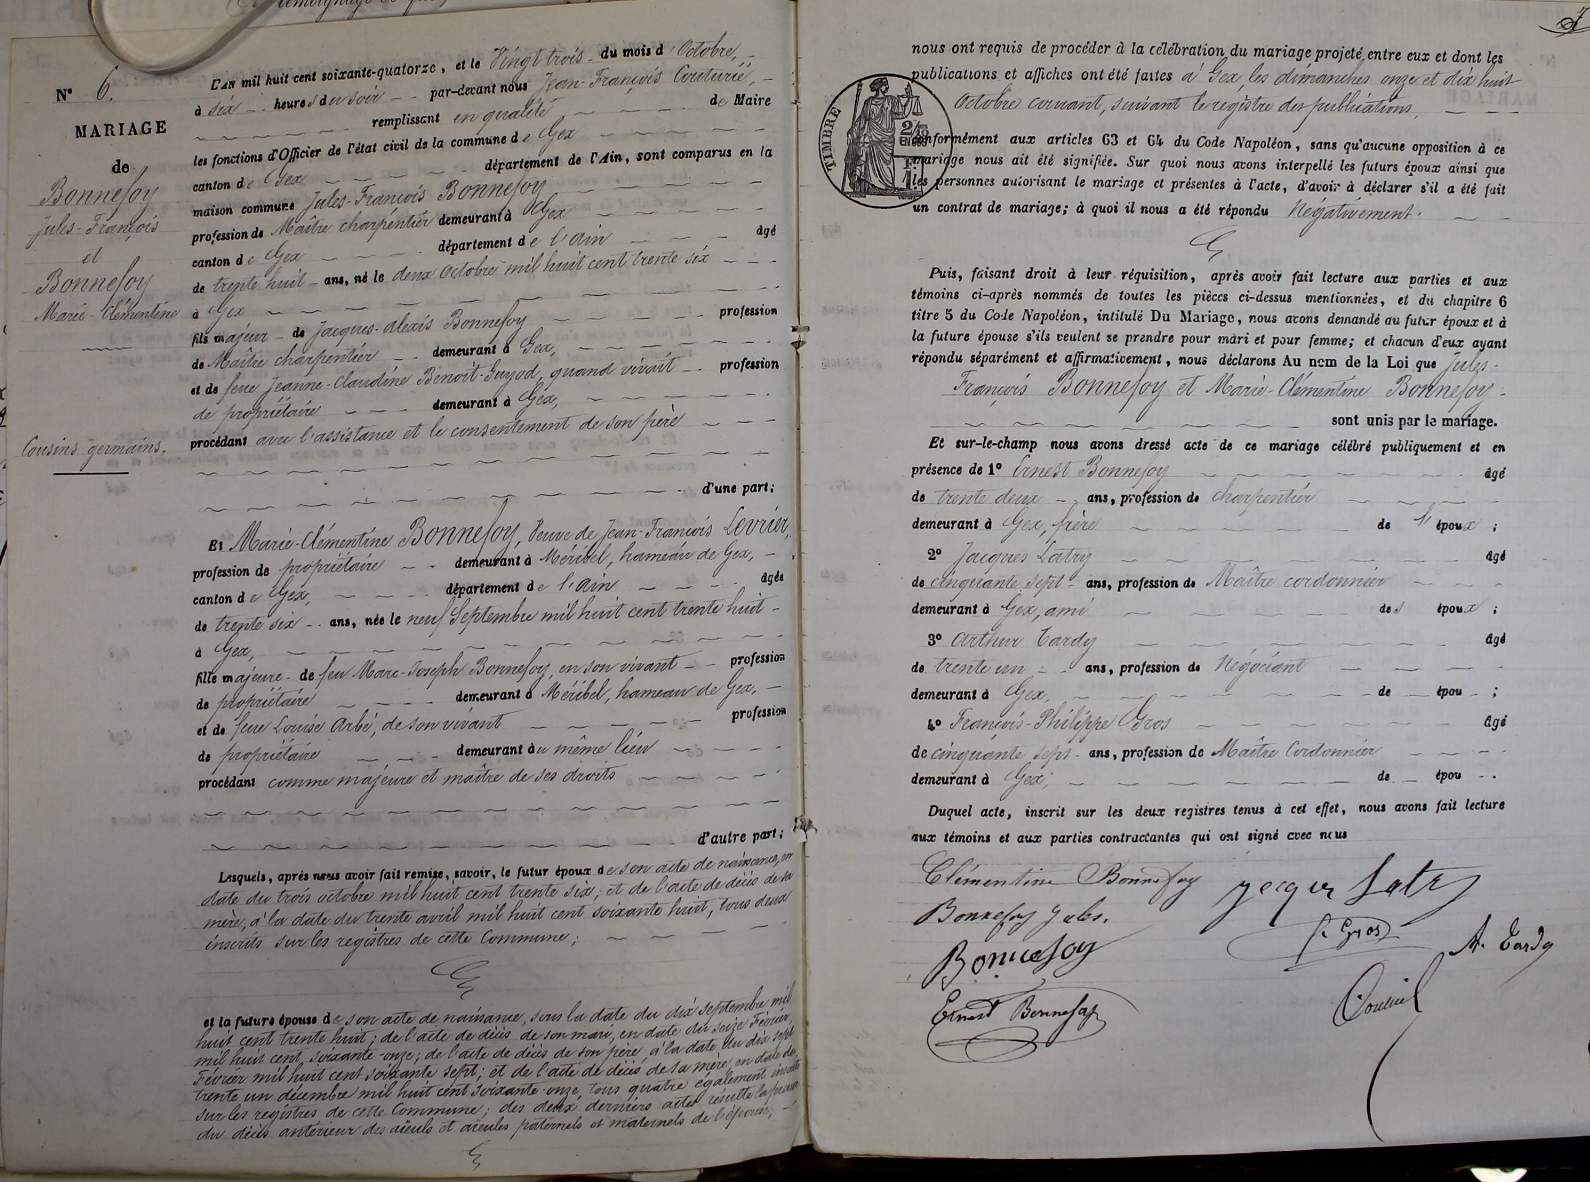 témoignage de
N° 6.
MARIAGE
de
Bonnefoy
Jules-François
et
Bonnefoy
Marie-Clémentine
Cousins germains.
L'AN mil huit cent soixante-quatorze, et le Vingt trois du mois d'Octobre,
à six heures du soir par-devant nous Jean-François Couturié
remplissant en qualité de Maire
les fonctions d'Officier de l'état civil de la commune de Gex
canton de Gex département de l'Ain, sont comparus en la
maison commune Jules-François Bonnefoy
profession de Maître charpentier demeurant à Gex
canton de Gex département de l'Ain âgé
de trente huit ans, né le deux Octobre mil huit cent trente six
à Gex
fils majeur de Jacques-Alexis Bonnefoy profession
de Maître charpentier demeurant à Gex,
et de feue Jeanne-Claudine Benoit-Guyod, quand vivait profession
de propriétaire demeurant à Gex,
procédant avec l'assistance et le consentement de son père
d'une part;
Et Marie-Clémentine Bonnefoy, Veuve de Jean-François Levrier,
profession de propriétaire demeurant à Méribel, hameau de Gex,
canton de Gex, département de l'Ain âgée
de trente six ans, née le neuf Septembre mil huit cent trente huit
à Gex,
fille majeure de feu Marc-Joseph Bonnefoy, en son vivant profession
de propriétaire demeurant à Méribel, hameau de Gex,
et de feue Louise Arbé, de son vivant profession
de propriétaire demeurant au même lieu
procédant comme majeure et maître de ses droits
d'autre part;
Lesquels, après nous avoir fait remise, savoir, le futur époux de son acte de naissance, en
date du trois octobre mil huit cent trente six; et de l'acte de décès de sa
mère, à la date du trente avril mil huit cent soixante huit, tous deux
inscrits sur les registres de cette Commune;
et la future épouse de son acte de naissance, sous la date du dix septembre mil
huit cent trente huit; de l'acte de décès de son mari, en date du seize Février
mil huit cent soixante-onze; de l'acte de décès de son père, à la date du dix sept
Février mil huit cent soixante sept; et de l'acte de décès de sa mère, en date du
trente un décembre mil huit cent soixante-onze, tous quatre également inscrits
sur les registres de cette Commune; des deux derniers actes résulte la preuve
du décès antérieur des aïeuls et aïeules paternels et maternels de l'épouse;
nous ont requis de procéder à la célébration du mariage projeté entre eux et dont les
publications et affiches ont été faites à Gex, les dimanches onze et dix huit
Octobre courant, suivant le registre des publications,
TIMBRE
conformément aux articles 63 et 64 du Code Napoléon, sans qu'aucune opposition à ce
mariage nous ait été signifiée. Sur quoi nous avons interpellé les futurs époux ainsi que
les personnes autorisant le mariage et présentes à l'acte, d'avoir à déclarer s'il a été fait
un contrat de mariage; à quoi il nous a été répondu Négativement.
Puis, faisant droit à leur réquisition, après avoir fait lecture aux parties et aux
témoins ci-après nommés de toutes les pièces ci-dessus mentionnées, et du chapitre 6
titre 5 du Code Napoléon, intitulé Du Mariage, nous avons demandé au futur époux et à
la future épouse s'ils veulent se prendre pour mari et pour femme; et chacun d'eux ayant
répondu séparément et affirmativement, nous déclarons Au nom de la Loi que Jules-
François Bonnefoy et Marie-Clémentine Bonnefoy
sont unis par le mariage.
Et sur-le-champ nous avons dressé acte de ce mariage célébré publiquement et en
présence de 1° Ernest Bonnefoy âgé
de trente deux ans, profession de charpentier
demeurant à Gex, frère de l'époux;
2° Jacques Latry âgé
de cinquante sept ans, profession de Maître cordonnier
demeurant à Gex, ami des époux;
3° Arthur Tardy âgé
de trente un ans, profession de Négociant
demeurant à Gex, de épou ;
4° François-Philippe Gros âgé
de cinquante sept ans, profession de Maître Cordonnier
demeurant à Gex; de épou .
Duquel acte, inscrit sur les deux registres tenus à cet effet, nous avons fait lecture
aux témoins et aux parties contractantes qui ont signé avec nous
Clémentine Bonnefoy
jacques Latry
Bonnefoy Jules.
Gros
A. Tardy
Bonnefoy
Ernest Bonnefoy